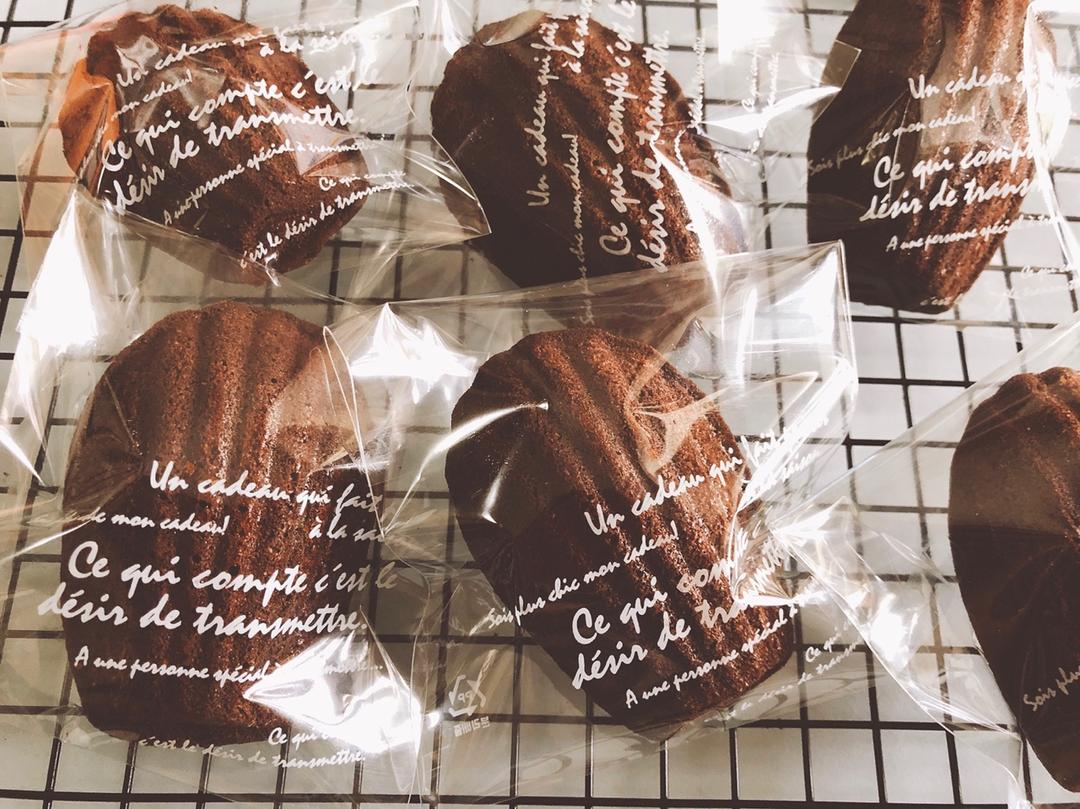 Un cadeau
mon cadeau!
à la
Ce qui compte c'est
désir de transmettre.
A une personne spécial à transmettre
Ce qui
c'est le désir de transmettre
Un cadeau qui fait
à la
mon cadeau!
Ce qui compte c'e
désir de transmettre.
Un cadeau
Sois plus chic mon cadeau!
Ce qui compt
désir de transm
A une personne spécial
c'est
Un cadeau qui fait
mon cadeau!
à la sai
Ce qui compte c'est le
désir de transmettre.
A une personne spécial
Ce qui
c'est le désir de transmettre.
Un cadeau qui fait
Sois plus chic mon cadeau!
Ce qui com
désir de transmett
A une personne spécial
Ce qu
de transm
Sois plus